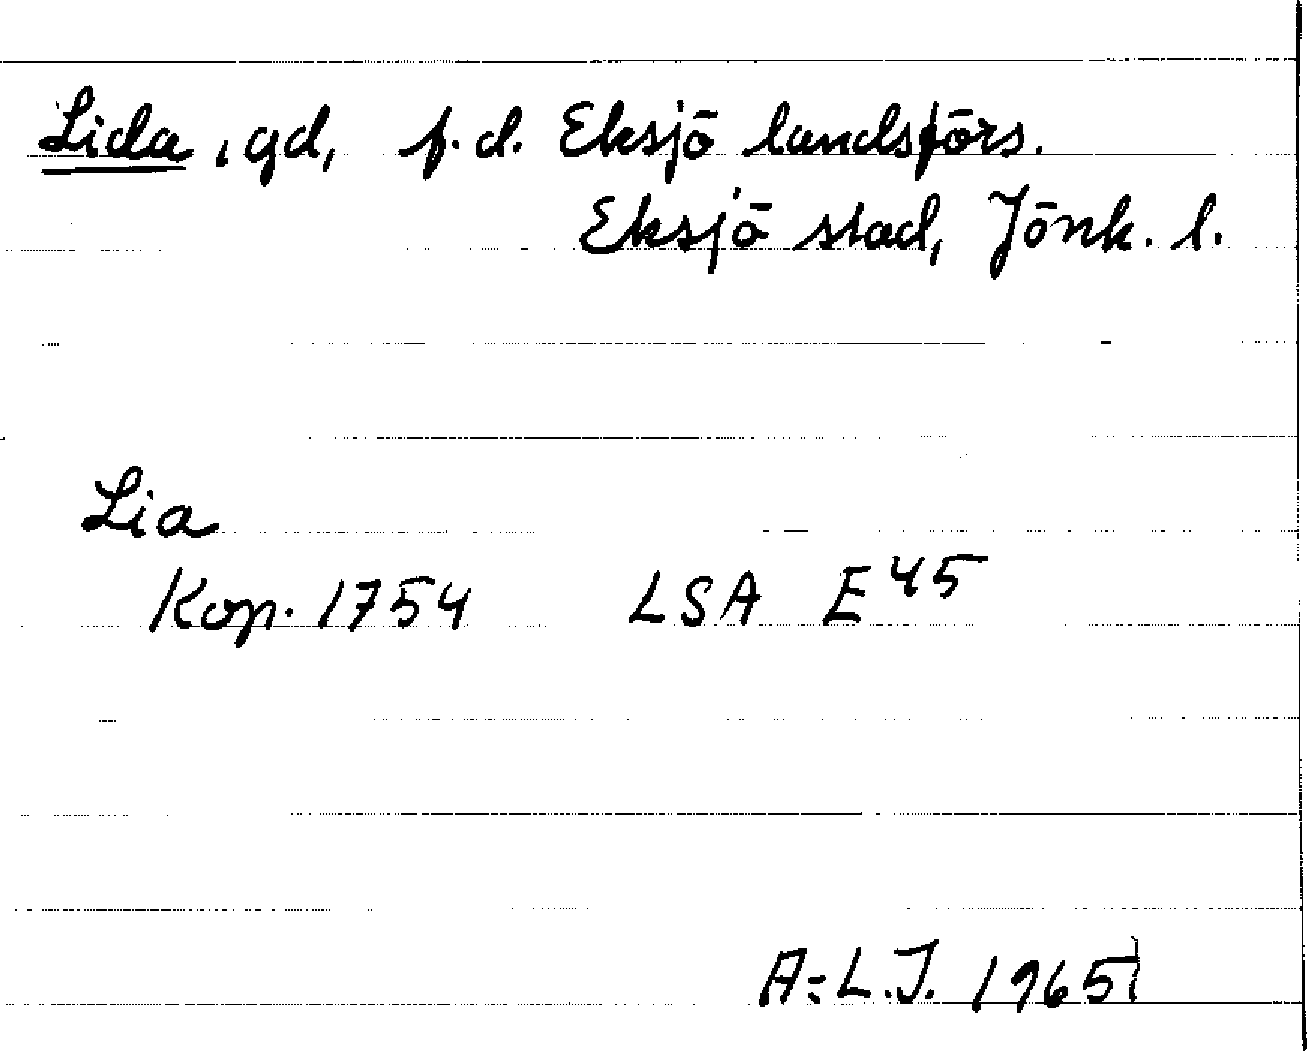 Lida, gd, f. d. Eksjö landsförs.
Eksjö stad, Jönk. l.
Lia
Kop. 1754 LSA E45
A=L.J. 1965